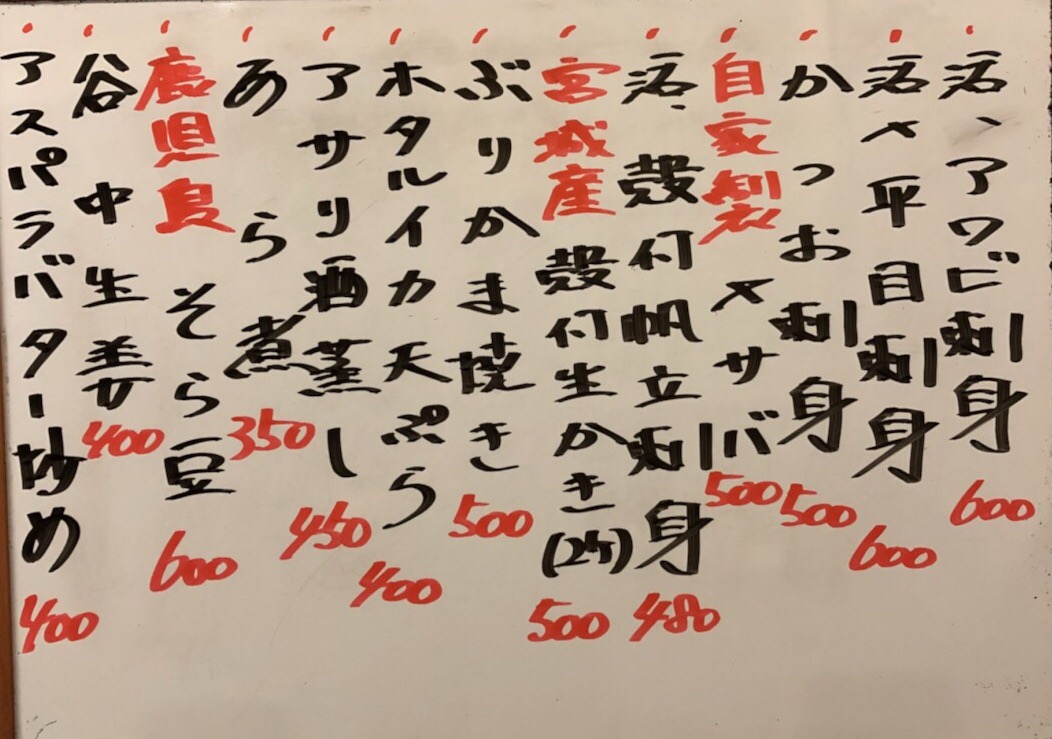 活、アワビ刺身 600
活〆平目刺身 600
かつお刺身 500
自家製〆サバ 500
活、殻付帆立刺身 480
宮城産殻付生かき(2ケ) 500
ぶりかま焼き 500
ホタルイカ天ぷら 400
アサリ酒蒸し 450
あら煮 350
鹿児島そら豆 600
谷中生姜 400
アスパラバター炒め 400